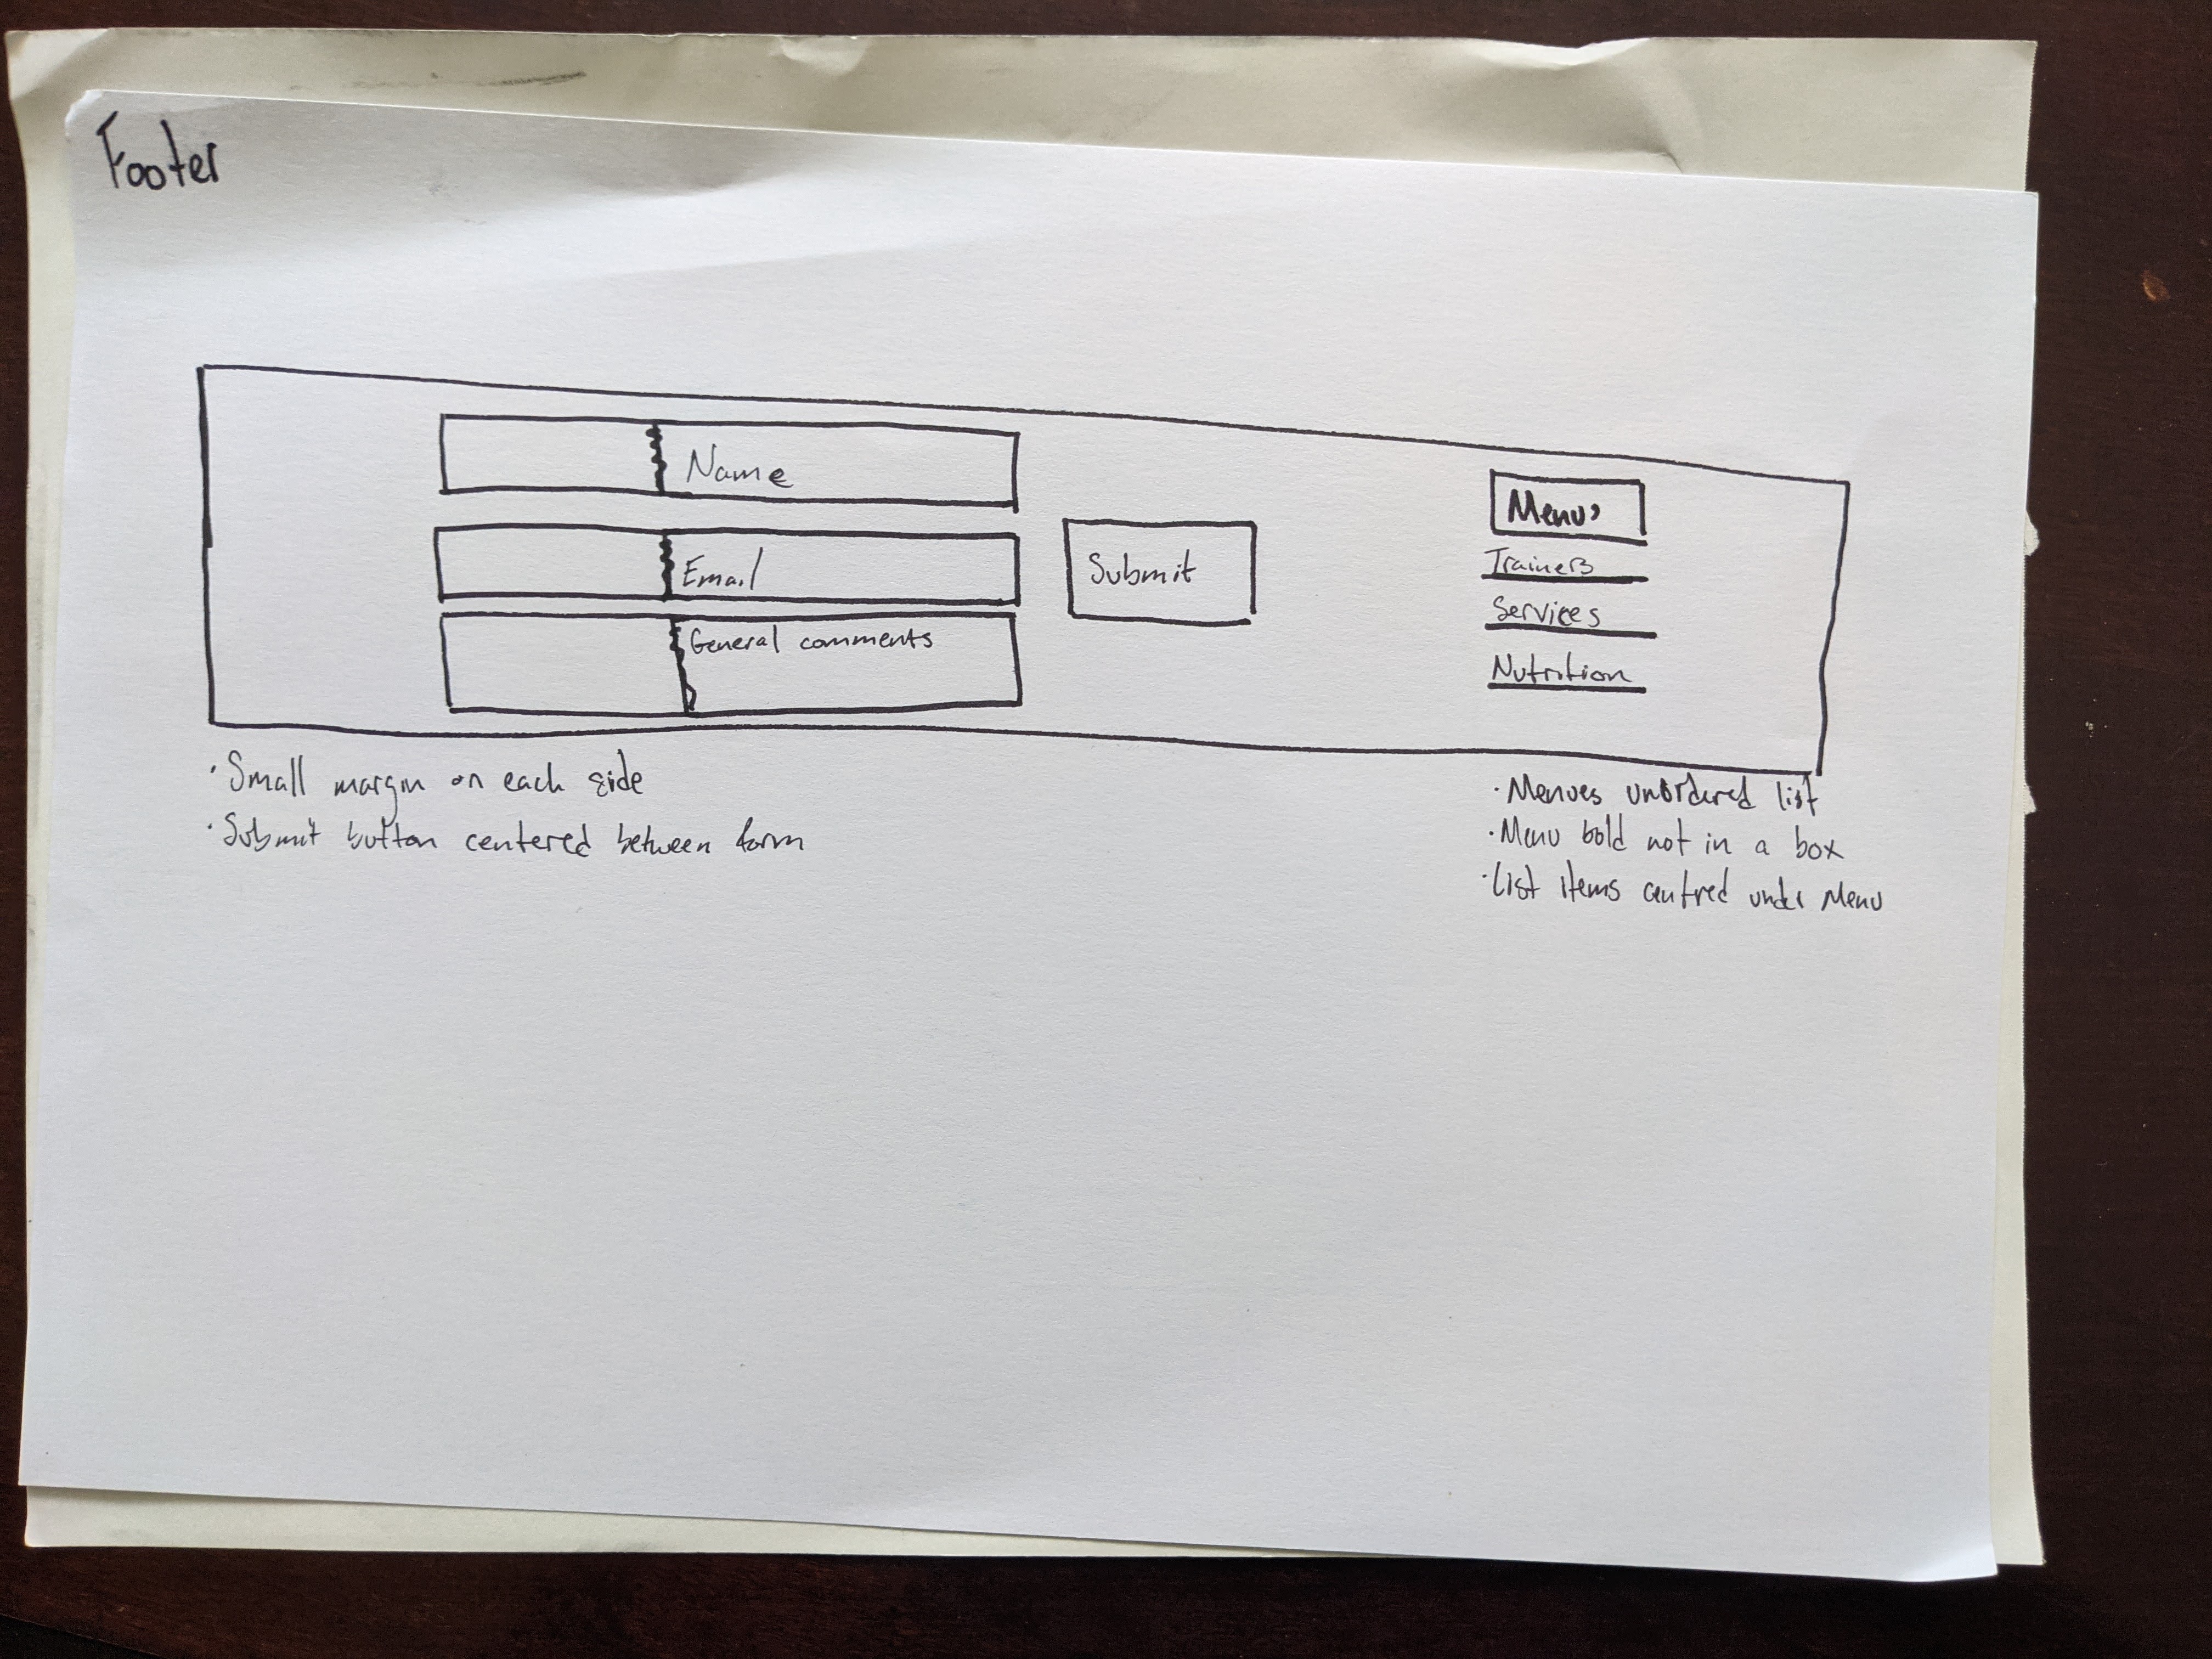 Footer
Name
Email
General comments
Submit
Menu
Trainers
Services
Nutrition
· Small margin on each side
· Submit button centered between form
· Menues unordered list
· Menu bold not in a box
· List items centred under Menu